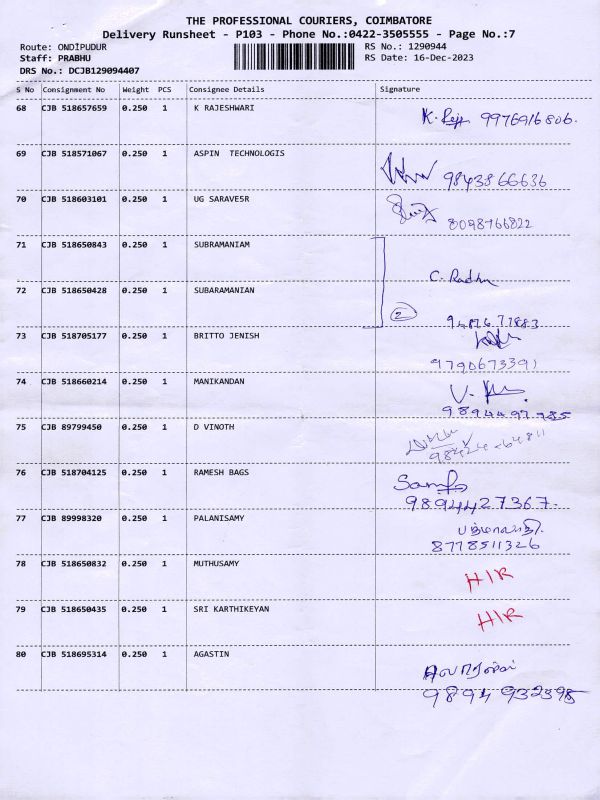 THE PROFESSIONAL COURIERS, COIMBATORE
Delivery Runsheet - P103 - Phone No.:0422-3505555 - Page No.:7
Route: ONDIPUDUR
RS No.: 1290944
Staff: PRABHU
RS Date: 16-Dec-2023
DRS No.: DCJB129094407
S No Consignment No Weight PCS Consignee Details Signature
68 CJB 518657659 0.250 1 K RAJESHWARI
9976916806.
69 CJB 518571067 0.250 1 ASPIN TECHNOLOGIS
9843866636
70 CJB 518603101 0.250 1 UG SARAVE5R
8098766822
71 CJB 518650843 0.250 1 SUBRAMANIAM
C. Radhu
72 CJB 518650428 0.250 1 SUBARAMANIAN
2
73 CJB 518705177 0.250 1 BRITTO JENISH
9790673391
74 CJB 518660214 0.250 1 MANIKANDAN
9894497785
75 CJB 89799450 0.250 1 D VINOTH
76 CJB 518704125 0.250 1 RAMESH BAGS
9894427367.
77 CJB 89998320 0.250 1 PALANISAMY
8778511326
78 CJB 518650832 0.250 1 MUTHUSAMY
HIR
79 CJB 518650435 0.250 1 SRI KARTHIKEYAN
HIR
80 CJB 518695314 0.250 1 AGASTIN